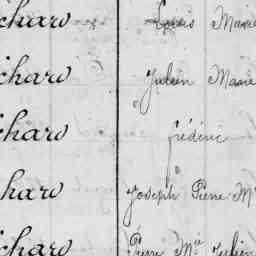 chard Louis Marie
chard Julien Marie
chard frédéric
hard Joseph Pierre M
chard Pierre Mie Julien